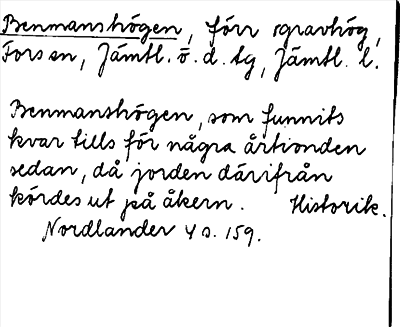 Benmanshögen, förr gravhög,
Fors sn, Jämtl. ö. d. tg, Jämtl. l.
Benmanshögen, som funnits
kvar tills för några årtionden
sedan, då jorden därifrån
kördes ut på åkern. Historik.
Nordlander 4 s. 159.